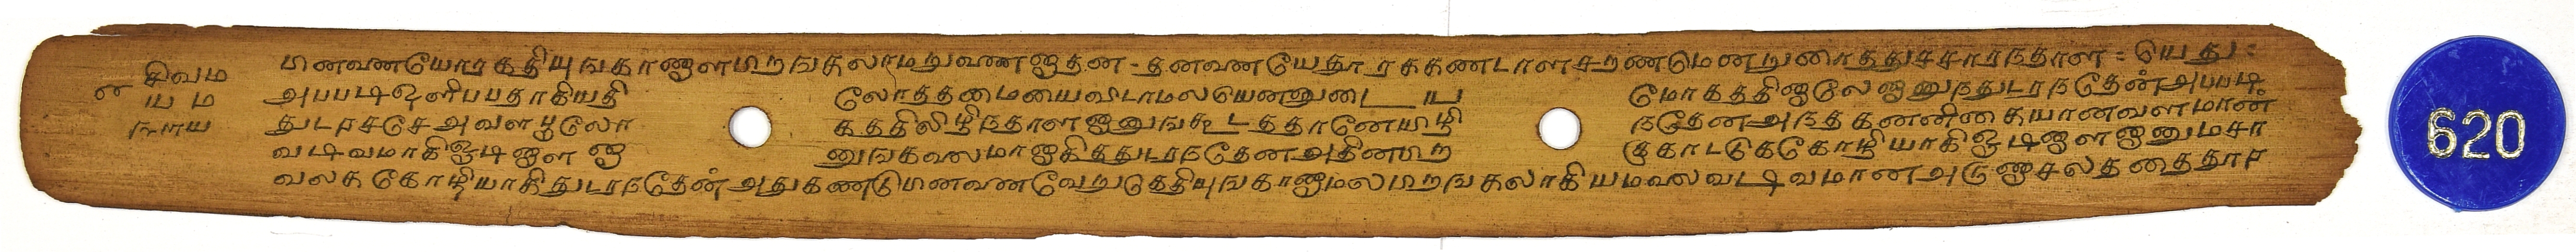 சிவம
யம
நளய
மனவணயோரகதியுஙகாணாளமறஙகலாமறுவணஞதன - தனவணயேதூரககணடாளசரணடுமனறுரைததுசசாரநதாள = யெது =
அபபடிஒளிபபதாகியதி லோததமையைவிடாமலயெனனுடைய மோகததிஞலேஞனுநதுடரநதேன்அபபடி
துடரசசேஅவளபூலோ கததிலிழிநதாளஞனுஙகூடததானேயிழி நதேனஅநதகனனிகையானவளமான்
வடிவமாகிஓடிஞளஞ னுஙகலைமாஞகிததுடரநதேனஅதினபிற குகாடடுககோழியாகிஓடிஞளஞனுமசா
வலககோழியாகிதுடரநதேன்அதுகணடுமனவணவேறுடுததியுஙகாணாமலமறஙகலாகியமலைவடிவமானஅருணாசலததைதூர
620